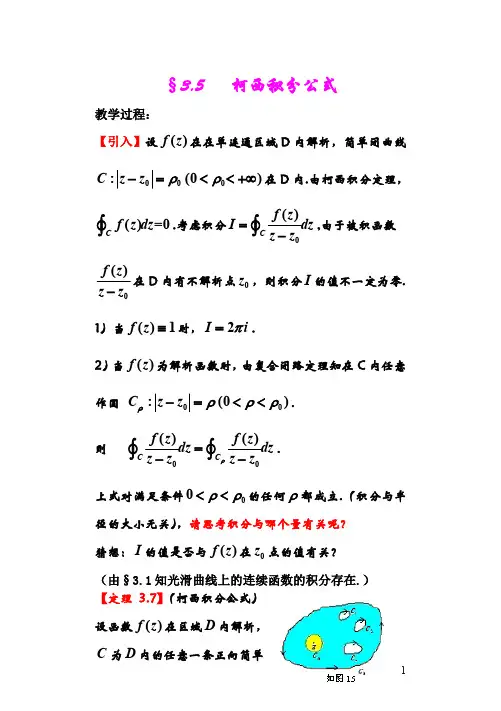 §3.5 柯西积分公式
教学过程:
【引入】设 f(z) 在在单连通区域 D 内解析,简单闭曲线
C:|z−z₀|=ρ₀ (0<ρ₀<+∞) 在 D 内.由柯西积分定理,
∮_C f(z)dz=0.考虑积分 I=∮_C f(z)/(z−z₀) dz,由于被积函数
f(z)/(z−z₀) 在 D 内有不解析点 z₀,则积分 I 的值不一定为零.
1)当 f(z)≡1 时,I=2πi.
2)当 f(z) 为解析函数时,由复合闭路定理知在 C 内任意
作圆 C_ρ:|z−z₀|=ρ (0<ρ<ρ₀).
则 ∮_C f(z)/(z−z₀) dz=∮_{C_ρ} f(z)/(z−z₀) dz.
上式对满足条件 0<ρ<ρ₀ 的任何 ρ 都成立.(积分与半
径的大小无关),请思考积分与哪个量有关呢?
猜想:I 的值是否与 f(z) 在 z₀ 点的值有关?
(由§3.1知光滑曲线上的连续函数的积分存在.)
【定理 3.7】(柯西积分公式)
设函数 f(z) 在区域 D 内解析,
C 为 D 内的任意一条正向简单
如图15
1